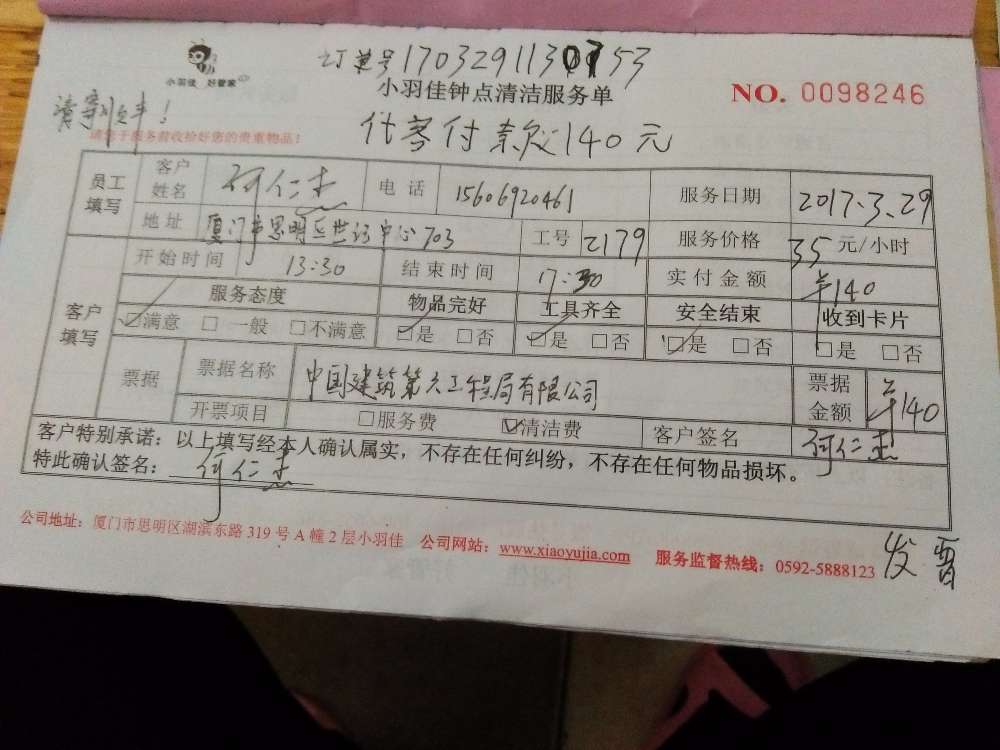 订单号1703291130753
小羽佳 好管家
小羽佳钟点清洁服务单
NO. 0098246
请您于服务前收拾好您的贵重物品!
代客付款140元
员工填写 客户姓名 何仁杰 电话 15606920461 服务日期 2017.3.29
地址 厦门市思明区世纪中心703 工号 2179 服务价格 35元/小时
客户填写 开始时间 13:30 结束时间 17:30 实付金额 ¥140
服务态度 物品完好 工具齐全 安全结束 收到卡片
☑满意 □一般 □不满意 ☑是 □否 ☑是 □否 ☑是 □否 ☑是 □否
票据 票据名称 中国建筑第六工程局有限公司 票据金额 ¥140
开票项目 □服务费 ☑清洁费 客户签名 何仁杰
客户特别承诺:以上填写经本人确认属实,不存在任何纠纷,不存在任何物品损坏。
特此确认签名: 何仁杰
公司地址:厦门市思明区湖滨东路319号A幢2层小羽佳 公司网站:www.xiaoyujia.com 服务监督热线:0592-5888123
发票